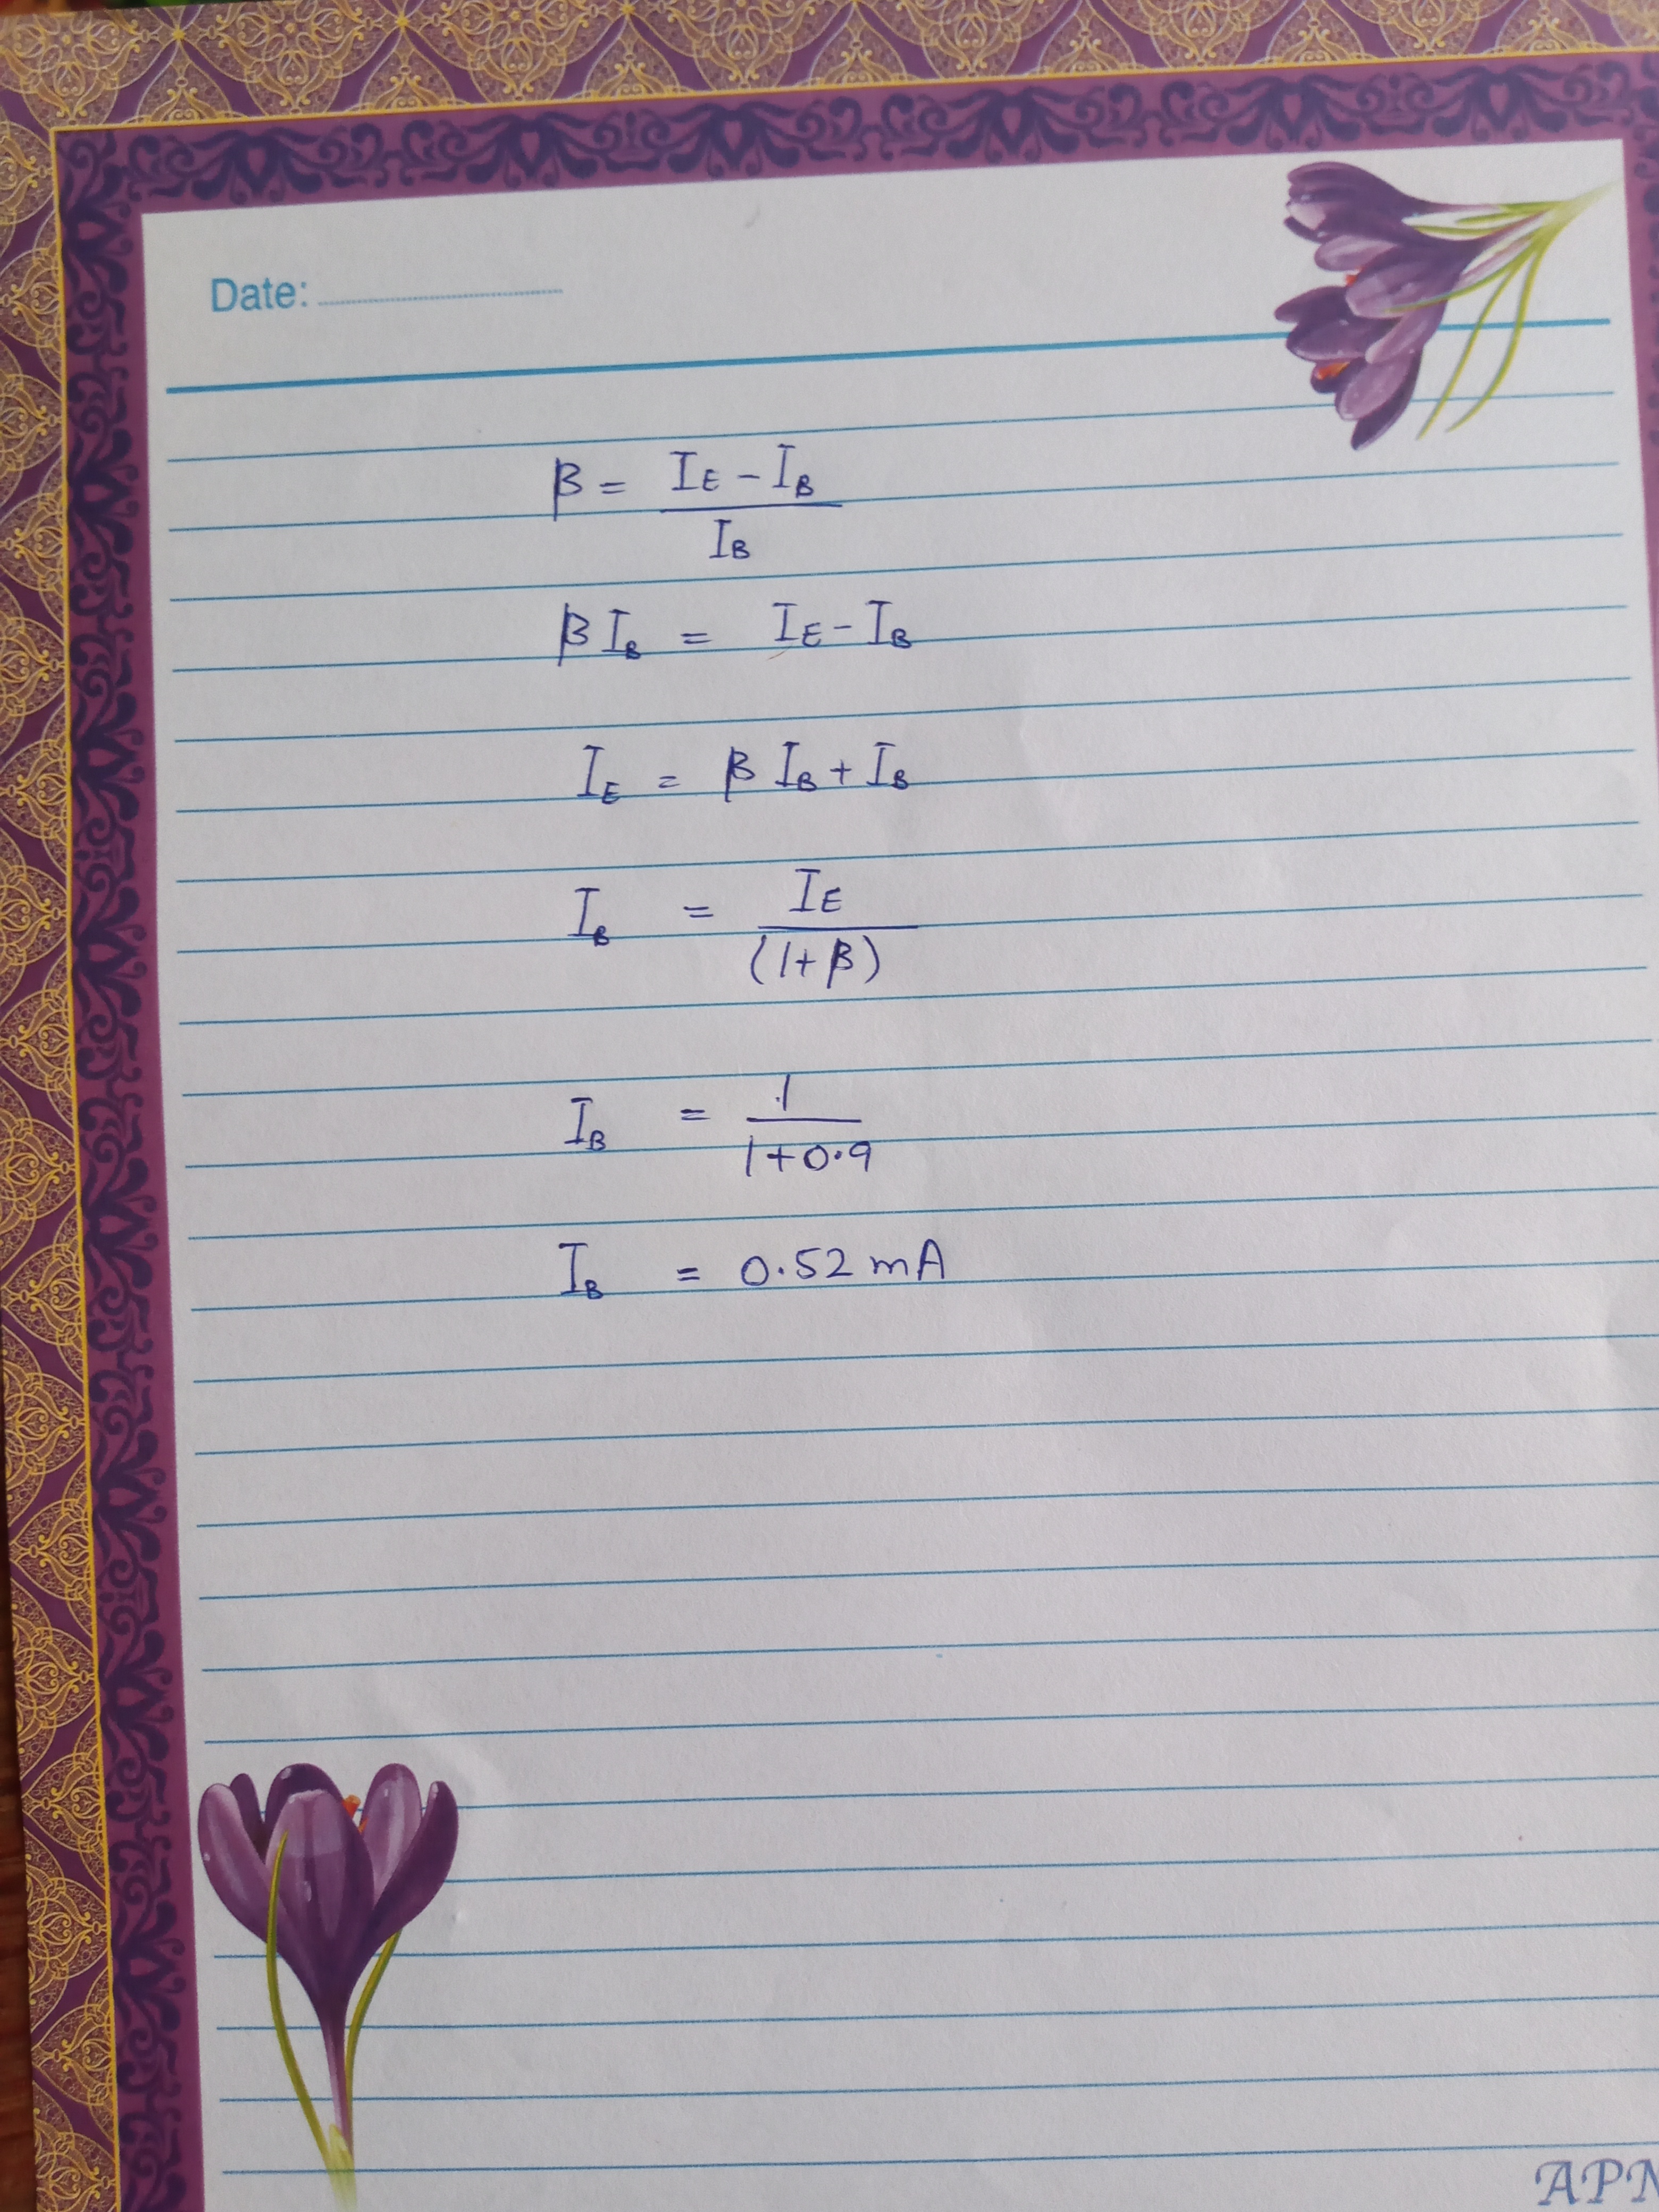 Date:
β = I_E - I_B / I_B
β I_B = I_E - I_B
I_E = β I_B + I_B
I_B = I_E / (1+β)
I_B = 1 / 1+0.9
I_B = 0.52 mA